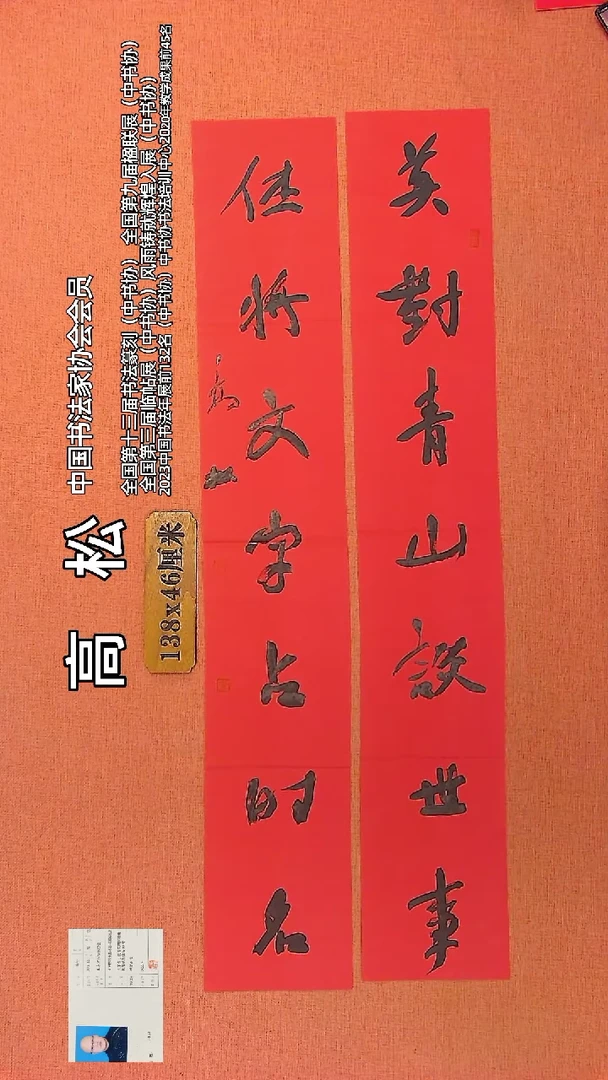 莫對青山談世事
但将文字占时名
高松
中国书法家协会会员
全国第十三届书法篆刻（中书协） 全国第九届楹联展（中书协）
全国第三届临帖展（中书协）风雨铸就辉煌入展（中书协）
2023中国书法年展前132名（中书协）中书协书法培训中心2020年教学成果前45名
138x46厘米